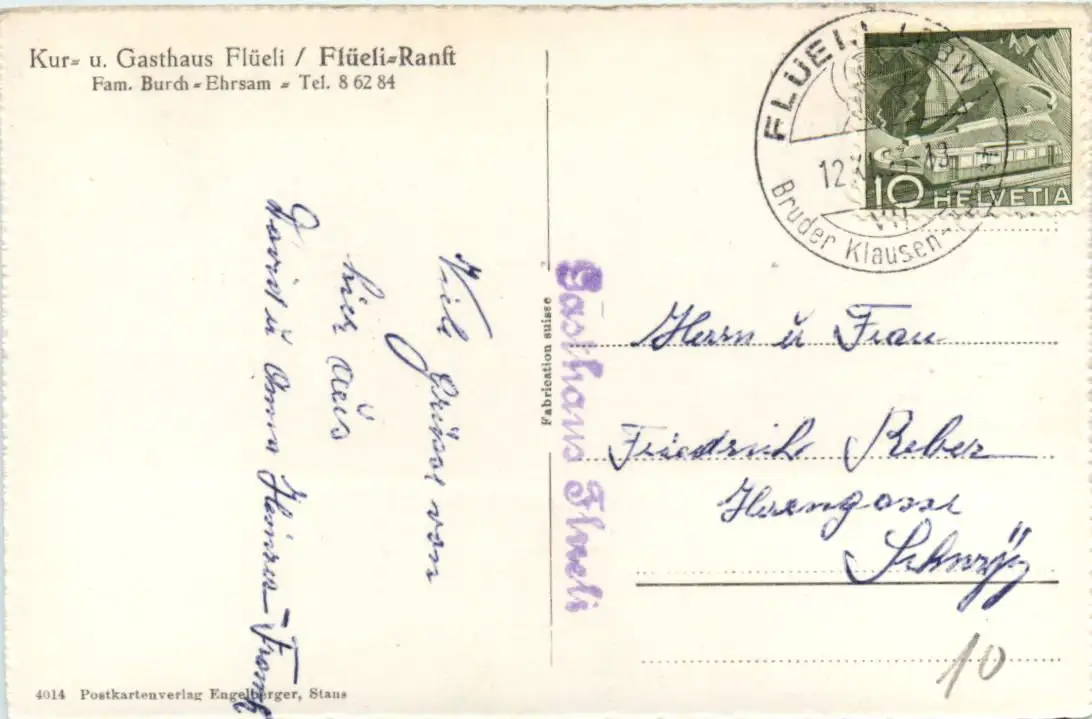 Kur- u. Gasthaus Flüeli / Flüeli-Ranft
Fam. Burch-Ehrsam - Tel. 8 62 84
Viele Grüsse von
hier aus
u Anna
4014 Postkartenverlag Engelberger, Stans
Fabrication suisse
Gasthaus Flueli
FLUELI
12
13
Bruder Klausen-
10 HELVETIA
Herrn u Frau
Friedrich Reber
Herrengasse
Schwyz
10